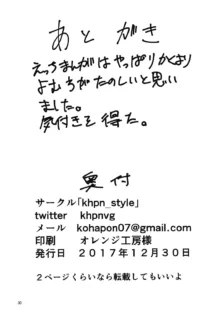 あとがき
えっちまんがはやっぱりかくより
よむちがたのしいと思い
ました。
気付きを得た。
奥付
サークル「khpn_style」
twitter khpnvg
メール kohapon07@gmail.com
印刷 オレンジ工房様
発行日 2017年12月30日
2ページくらいなら転載してもいいよ